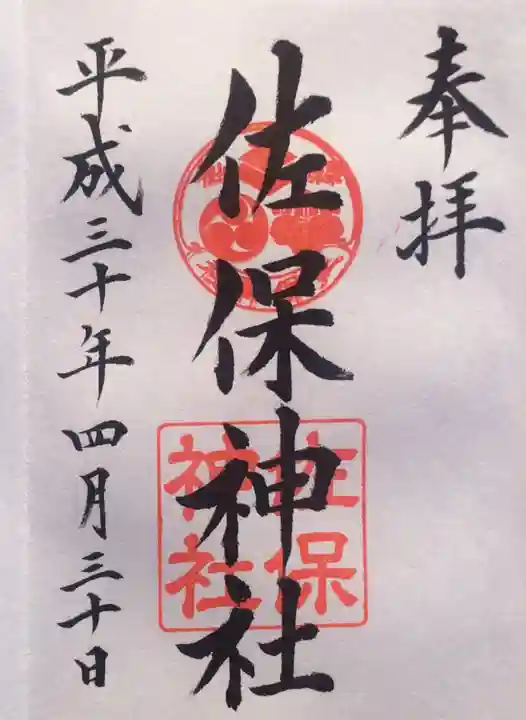 奉拝
佐保神社
平成三十年四月三十日
佐保
神社